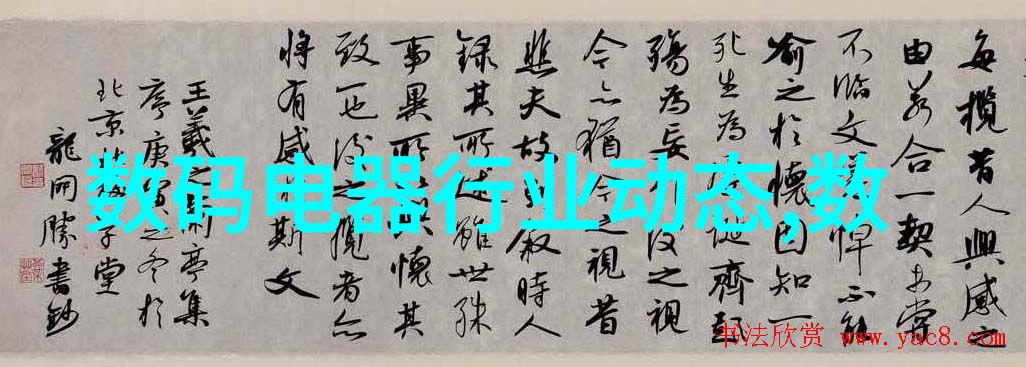 每攬昔人興感之
由若合一契未嘗
不臨文嗟悼不能
喻之於懷固知一
死生為誕齊彭
殤為妄作後之視
今亦猶今之視昔
悲夫故列敘時人
録其所述雖世殊
事異所以懷其
致一也後之攬者亦
將有感於斯文
王羲之蘭亭集
序庚寅之冬於
北京子堂
龍開勝書鈔
数码电器行业动态,数
书法欣赏
www.yac8.com